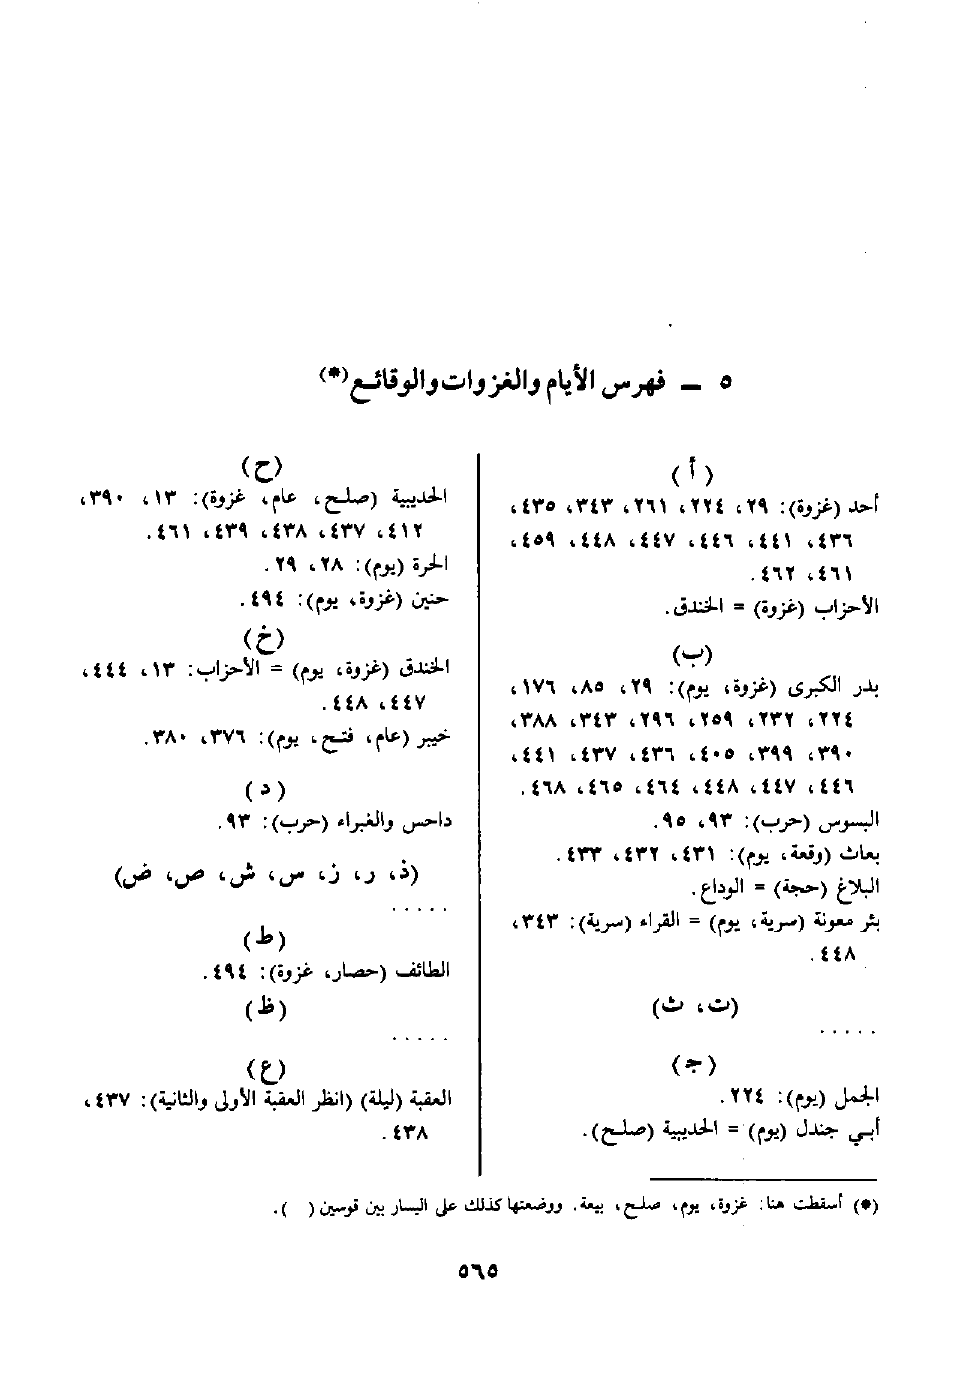 ٥ ــ فهرس الأيام والغزوات والوقائع(*)
(أ)
أحد (غزوة): ٢٩، ٢٢٤، ٢٦١، ٣٤٣، ٤٣٥،
٤٣٦، ٤٤١، ٤٤٦، ٤٤٧، ٤٤٨، ٤٥٩،
٤٦١، ٤٦٢.
الأحزاب (غزوة) = الخندق.
(ب)
بدر الكبرى (غزوة، يوم): ٢٩، ٨٥، ١٧٦،
٢٢٤، ٢٣٢، ٢٥٩، ٢٩٦، ٣٤٣، ٣٨٨،
٣٩٠، ٣٩٩، ٤٠٥، ٤٣٦، ٤٣٧، ٤٤١،
٤٤٦، ٤٤٧، ٤٤٨، ٤٦٤، ٤٦٥، ٤٦٨.
البسوس (حرب): ٩٣، ٩٥.
بعاث (وقعة، يوم): ٤٣١، ٤٣٢، ٤٣٣.
البلاغ (حجة) = الوداع.
بئر معونة (سرية، يوم) = القراء (سرية): ٣٤٣،
٤٤٨.
(ت، ث)
. . . . .
(جـ)
الجمل (يوم): ٢٢٤.
أبي جندل (يوم) = الحديبية (صلح).
(ح)
الحديبية (صلح، عام، غزوة): ١٣، ٣٩٠،
٤١٢، ٤٣٧، ٤٣٨، ٤٣٩، ٤٦١.
الحرة (يوم): ٢٨، ٢٩.
حنين (غزوة، يوم): ٤٩٤.
(خ)
الخندق (غزوة، يوم) = الأحزاب: ١٣، ٤٤٤،
٤٤٧، ٤٤٨.
خيبر (عام، فتح، يوم): ٣٧٦، ٣٨٠.
(د)
داحس والغبراء (حرب): ٩٣.
(ذ، ر، ز، س، ش، ص، ض)
. . . . .
(ط)
الطائف (حصار، غزوة): ٤٩٤.
(ظ)
. . . . .
(ع)
العقبة (ليلة) (انظر العقبة الأولى والثانية): ٤٣٧،
٤٣٨.
(*) أسقطت هنا: غزوة، يوم، صلح، بيعة. ووضعتها كذلك على اليسار بين قوسين ( ).
٥٦٥